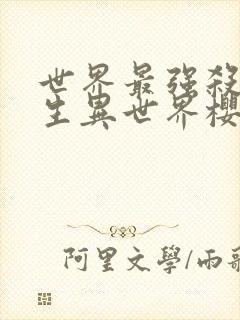 世界最強殺
生異世界櫻
阿里文學/雨歌